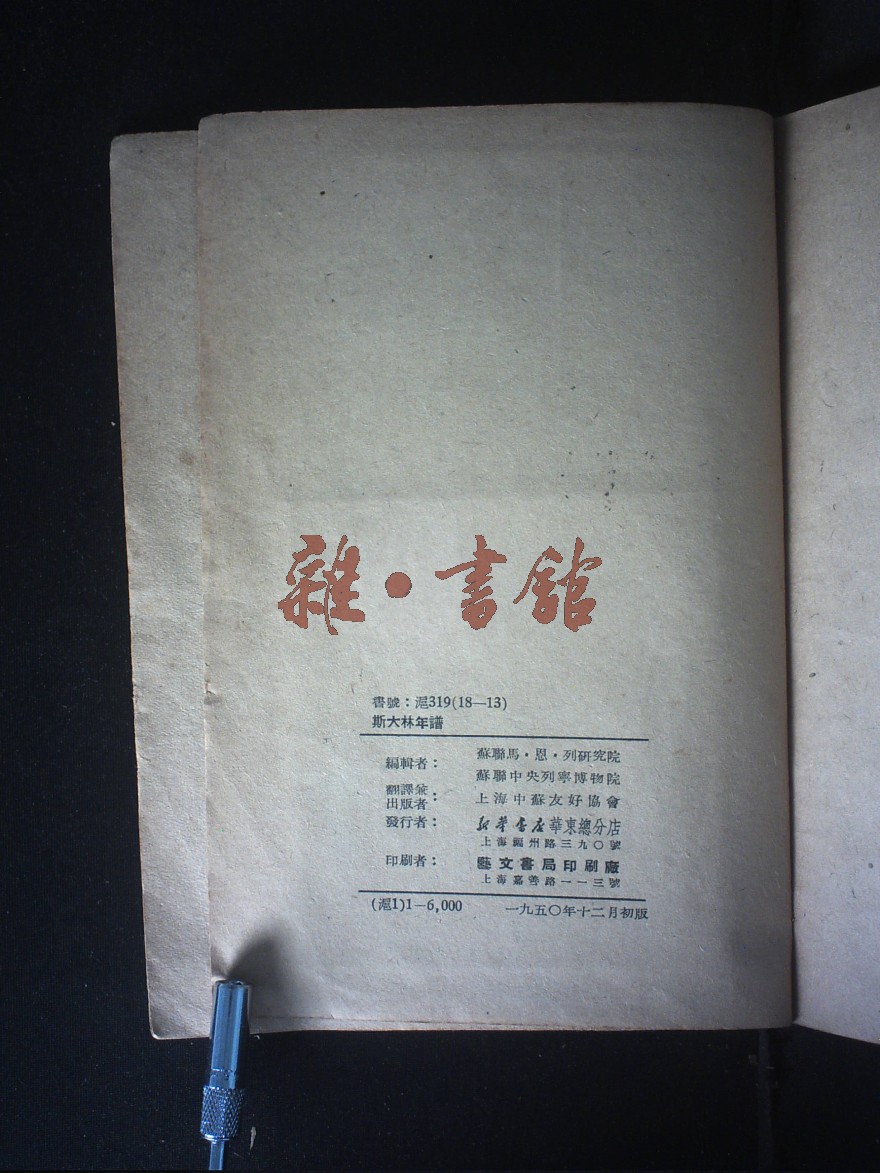 雜·書館
書號：滬319(18—13)
斯大林年譜
編輯者：
蘇聯馬·恩·列研究院
蘇聯中央列寧博物院
翻譯兼
出版者：
上海中蘇友好協會
發行者：
新華書店華東總分店
上海福州路三九〇號
印刷者：
藝文書局印刷廠
上海嘉善路一一三號
(滬1)1—6,000
一九五〇年十二月初版